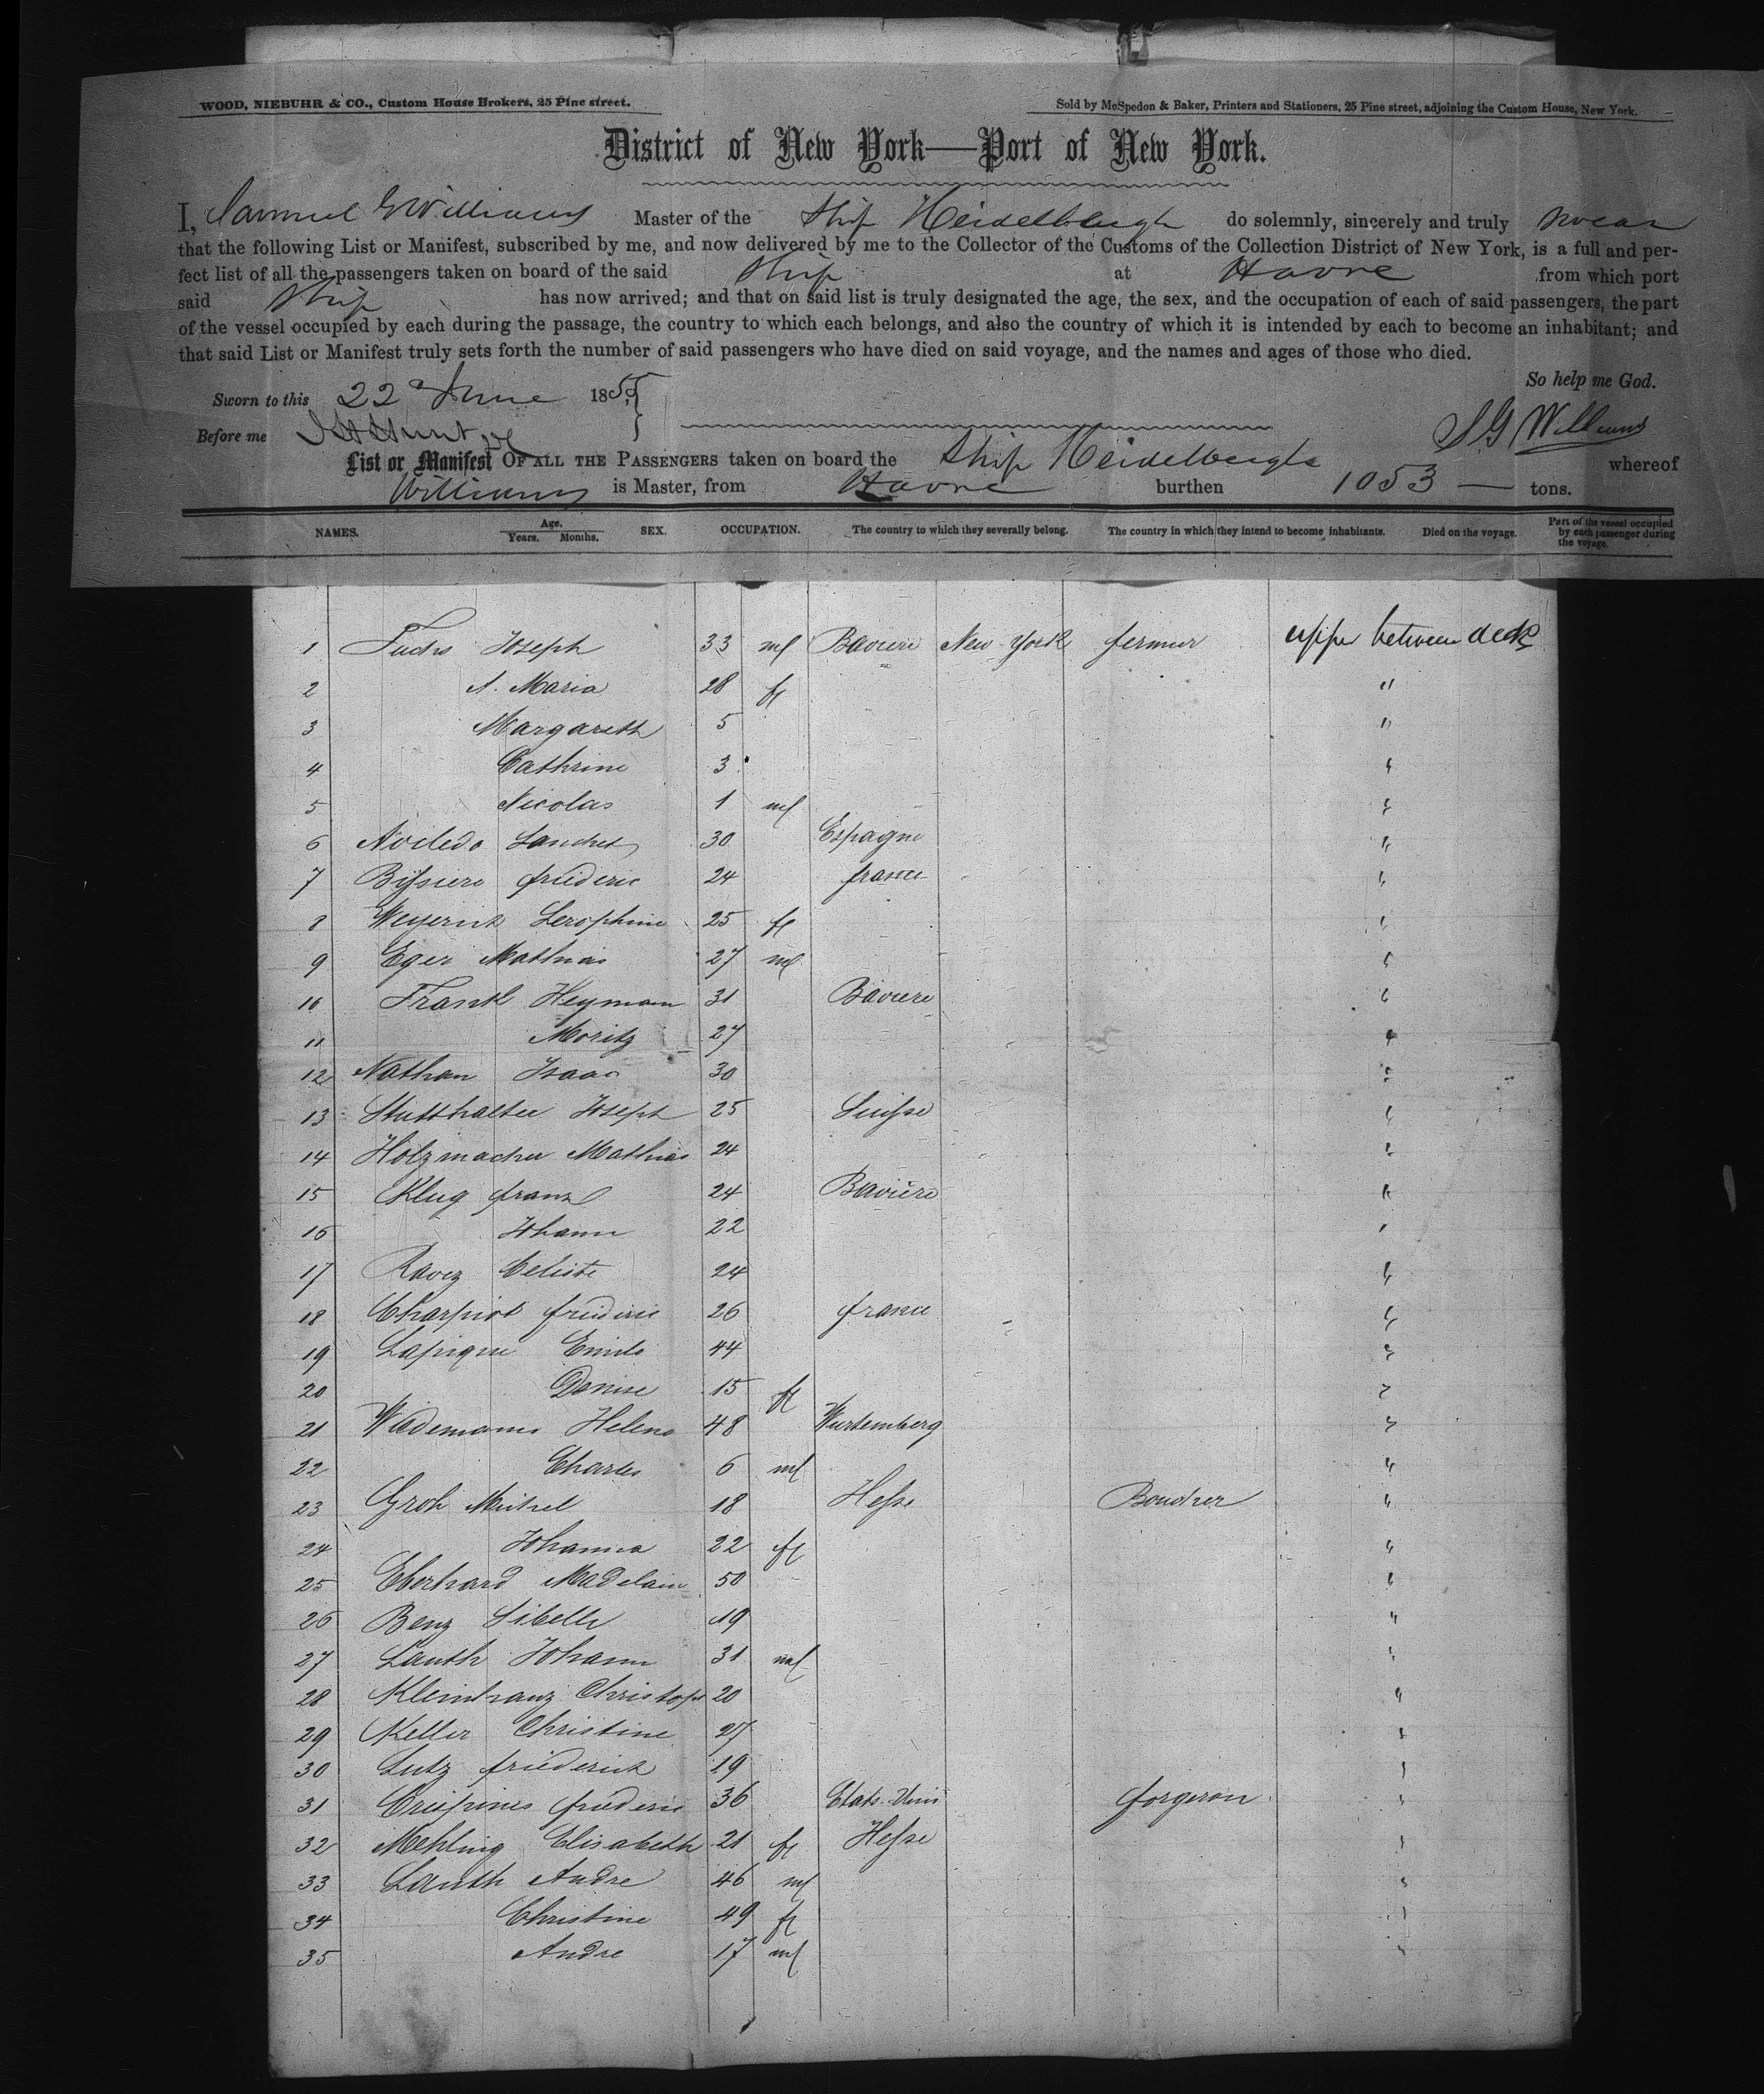 WOOD, NIEBUHR & CO., Custom House Brokers, 25 Pine street.
Sold by McSpedon & Baker, Printers and Stationers, 25 Pine street, adjoining the Custom House, New York.
District of New York—Port of New York.
I, Samuel G Williams Master of the Ship Heidelbergh do solemnly, sincerely and truly swear
that the following List or Manifest, subscribed by me, and now delivered by me to the Collector of the Customs of the Collection District of New York, is a full and per-
fect list of all the passengers taken on board of the said Ship at Havre from which port
said Ship has now arrived; and that on said list is truly designated the age, the sex, and the occupation of each of said passengers, the part
of the vessel occupied by each during the passage, the country to which each belongs, and also the country of which it is intended by each to become an inhabitant; and
that said List or Manifest truly sets forth the number of said passengers who have died on said voyage, and the names and ages of those who died.
So help me God.
Sworn to this 22 June 1855
S G Williams
Before me
List or Manifest OF ALL THE PASSENGERS taken on board the Ship Heidelbergh whereof
Williams is Master, from Havre burthen 1053 — tons.
NAMES. Age. Years. Months. SEX. OCCUPATION. The country to which they severally belong. The country in which they intend to become inhabitants. Died on the voyage. Part of the vessel occupied by each passenger during the voyage.
1 Fuchs Joseph 33 ml Baviere New York fermier upper between deck
2 A. Maria 28 fl "
3 Margareth 5 "
4 Cathrine 3 "
5 Nicolas 1 ml "
6 Sanchez 30 Espagne "
7 friederic 24 france "
8 Serophine 25 fl "
9 Eger Mathias 27 ml "
10 Frankl Heyman 31 Baviere "
11 Moritz 27 "
12 Nathan Isaac 30 "
13 Stutthalter Joseph 25 Suisse "
14 Holzmacher Mathias 24 "
15 Klug franz 24 Baviere "
16 Johann 22 "
17 Ravez Celeste 24 "
18 Charpiot friederic 26 france "
19 Lapique Emile 44 "
20 Denise 15 fl "
21 Wademann Helena 48 Wurtemberg "
22 Charles 6 ml "
23 Groh Michel 18 Hesse "
24 Johanna 22 fl "
25 Eberhard Madelain 50 "
26 Benz Sibelle 19 "
27 Lauth Johann 31 ml "
28 Kleinhanz Christoph 20 "
29 Keller Christine 27 "
30 Lutz friederick 19 "
31 Crispinus friederic 36 Etats-Unis forgeron "
32 Mehling Elisabeth 21 fl Hesse "
33 Lauth Andre 46 ml "
34 Christine 49 fl "
35 Andre 17 ml "